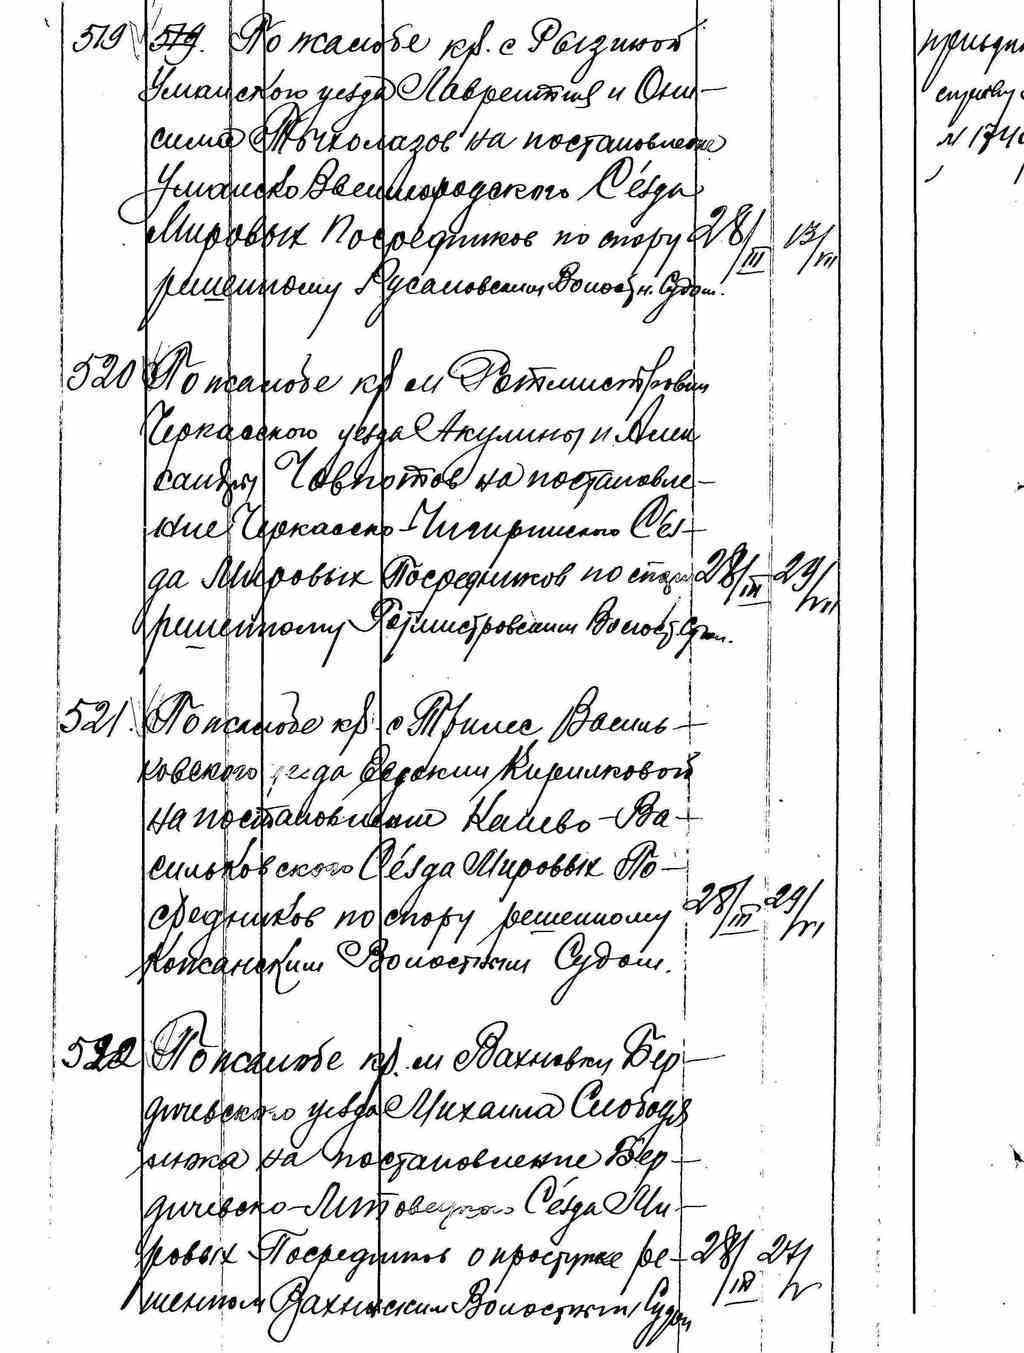 519 519. По жалобе кр. с Рызиной
Уманского уезда Лаврентия и Они-
сима Тычколазов на постановление
Уманско Звенигородского Съезда
Мировых Посредников по спору 28/III 13/VII
решенному Русаловским Волостн. Судом.
520 По жалобе кр м Ротмистровки
Черкасского уезда Акулины и Алек
сандры Човпотов на постановле-
ние Черкасско-Чигиринского Съез-
да Мировых Посредников по спору 28/III 29/VII
решенному Ротмистровским Волост Судом.
521. По жалобе кр. с Трилес Василь-
ковского уезда Евдокии Кирилковой
на постановление Киево-Ва-
сильковского Съезда Мировых По-
средников по спору решенному 28/III 29/VI
Кожанским Волостным Судом.
522 По жалобе кр. м Вахновки Бер-
дичевского уезда Михаила Слободя
нюка на постановление Бер-
дичевско-Липовецкого Съезда Ми-
ровых Посредников о проступке ре- 28/III 27/V
шенном Вахновским Волостным Судом
присоди
справку
№ 174